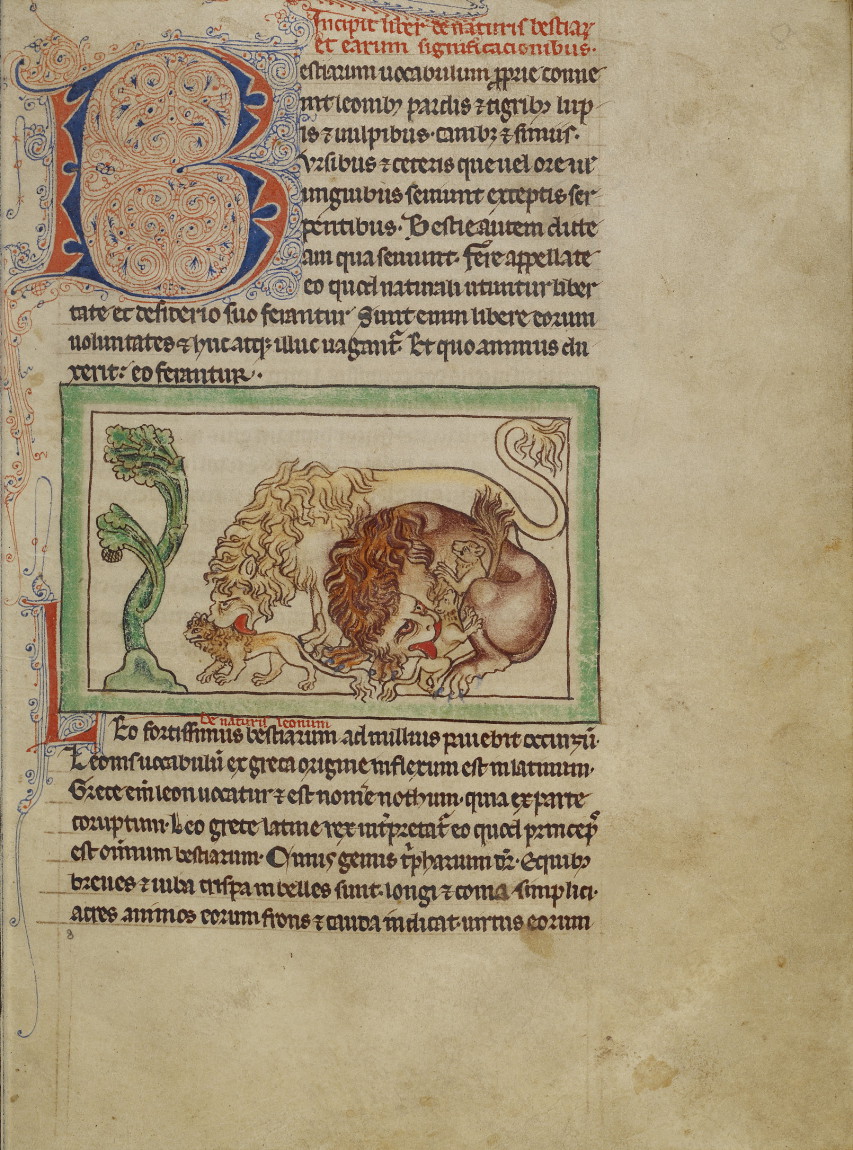 Incipit liber de naturis bestiaꝝ
et earum significacionibus·
Bestiarum uocabulum ꝓprie conue
nit leonibꝫ pardis ⁊ tigribꝫ lup
is ⁊ uulpibus· canibꝫ ⁊ simiis·
Vrsibus ⁊ ceteris que uel ore ue
unguibus seuiunt exceptis ser
pentibus· Bestie autem dicte
am qua seuiunt· Fere appellate
eo quod naturali utuntur liber
tate et desiderio suo ferantur Sunt enim libere eorum
uoluntates ⁊ huc atqꝫ illuc uagant᷑· Et quo animus du
xerit: eo feruntur·
De naturis leonum
Leo fortissimus bestiarum ad nullius pauebit occursū·
Leonis uocabulū ex greca origine inflexum est in latinum·
Grece eni leon uocatur ⁊ est nomē nothum· quia ex parte
coruptum· Leo grece latine rex int̾pretat᷑ eo quod princeps
est omnium bestiarum· Cuius genus t̾pharium dr̄· Equibꝫ
breues ⁊ iuba crispa inbelles sunt· longi ⁊ coma simplici·
acres animos eorum frons ⁊ cauda indicat· uirtus eorum
8